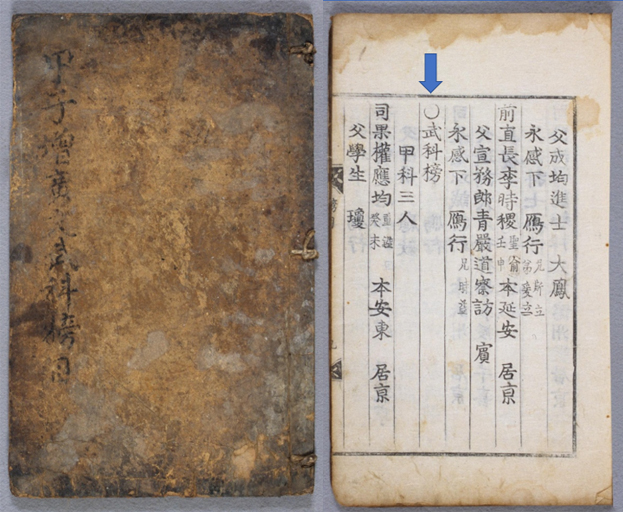 甲子增廣文武科榜目
父成均進士 大鳳
永感下 鴈行
前直長李時稷 聖俞 壬申 本延安 居京
父宣務郎青巖道察訪 賓
永感下 鴈行
〇武科榜
甲科三人
司果權應均 癸未 本安東 居京
父學生 瓊